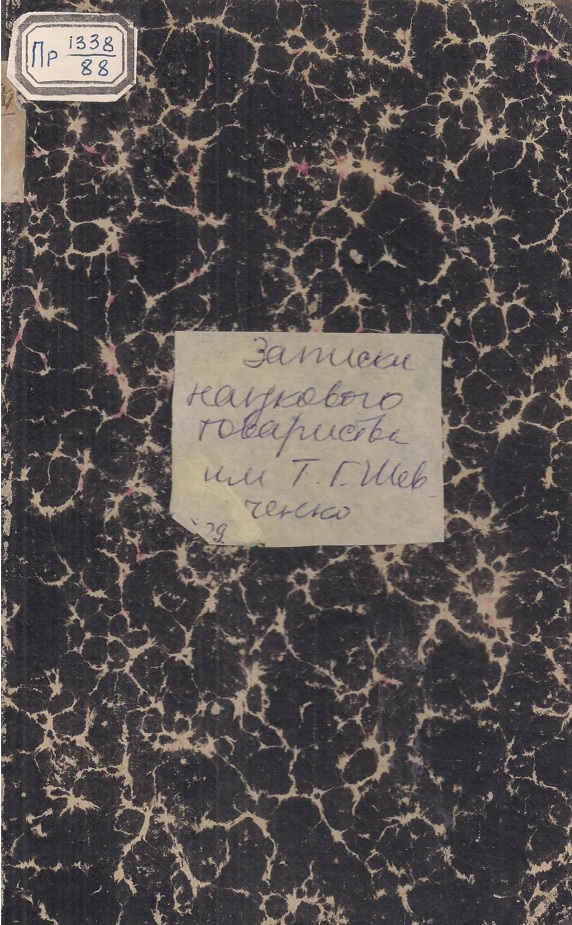 Пр 1338
88
Записки
наукового
товариства
им Т. Г. Шев-
ченко